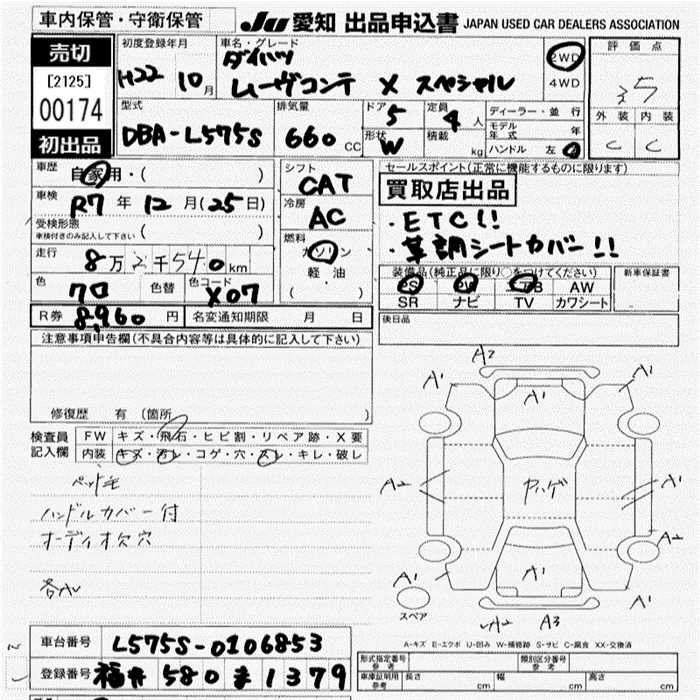 車内保管・守衛保管
Ju 愛知 出品申込書 JAPAN USED CAR DEALERS ASSOCIATION
売切
[2125]
00174
初出品
初度登録年月
H22 10月
車名・グレード
ダイハツ
ムーヴコンテ X スペシャル
2WD
4WD
評価点
3.5
外装 内装
C C
型式
DBA-L575S
排気量
660 cc
ドア 5
形状 W
定員 4 人
積載 kg
ディーラー・並行
モデル年式 年
ハンドル 左
車歴 自家用・( )
車検 R7年12月(25日)
受検形態
車検付きのみ記入して下さい ( )
走行 8万2千540km
色 クロ 色替 色コード X07
R券 8,960円 名変通知期限 月 日
シフト
CAT
冷房
AC
燃料
ガソリン
軽油
( )
セールスポイント(正常に機能するものに限ります)
買取店出品
・ETC!!
・革調シートカバー!!
装備品(純正品に限り○をつけてください)
PS PW AB AW
SR ナビ TV カワシート
新車保証書
後日品
注意事項申告欄(不具合内容等は具体的に記入して下さい)
修復歴 有 (箇所 )
検査員記入欄
FW キズ・飛石・ヒビ割・リペア跡・X要
内装 キズ・汚レ・コゲ・穴・スレ・キレ・破レ
ペット毛
ハンドルカバー付
オーディオ欠穴
A2
A1
A1
A1
A2
ヤハゲ
A1
A2
A1
A1
A1
スペア
A2
A3
A-キズ E-エクボ U-凹み W-補修跡 S-サビ C-腐食 XX-交換済
車台番号 L575S-0106853
登録番号 福井 580 ま 1379
形式指定番号 参考
類別区分番号 参考
車庫証明用 参考
長さ cm 幅 cm 高さ cm